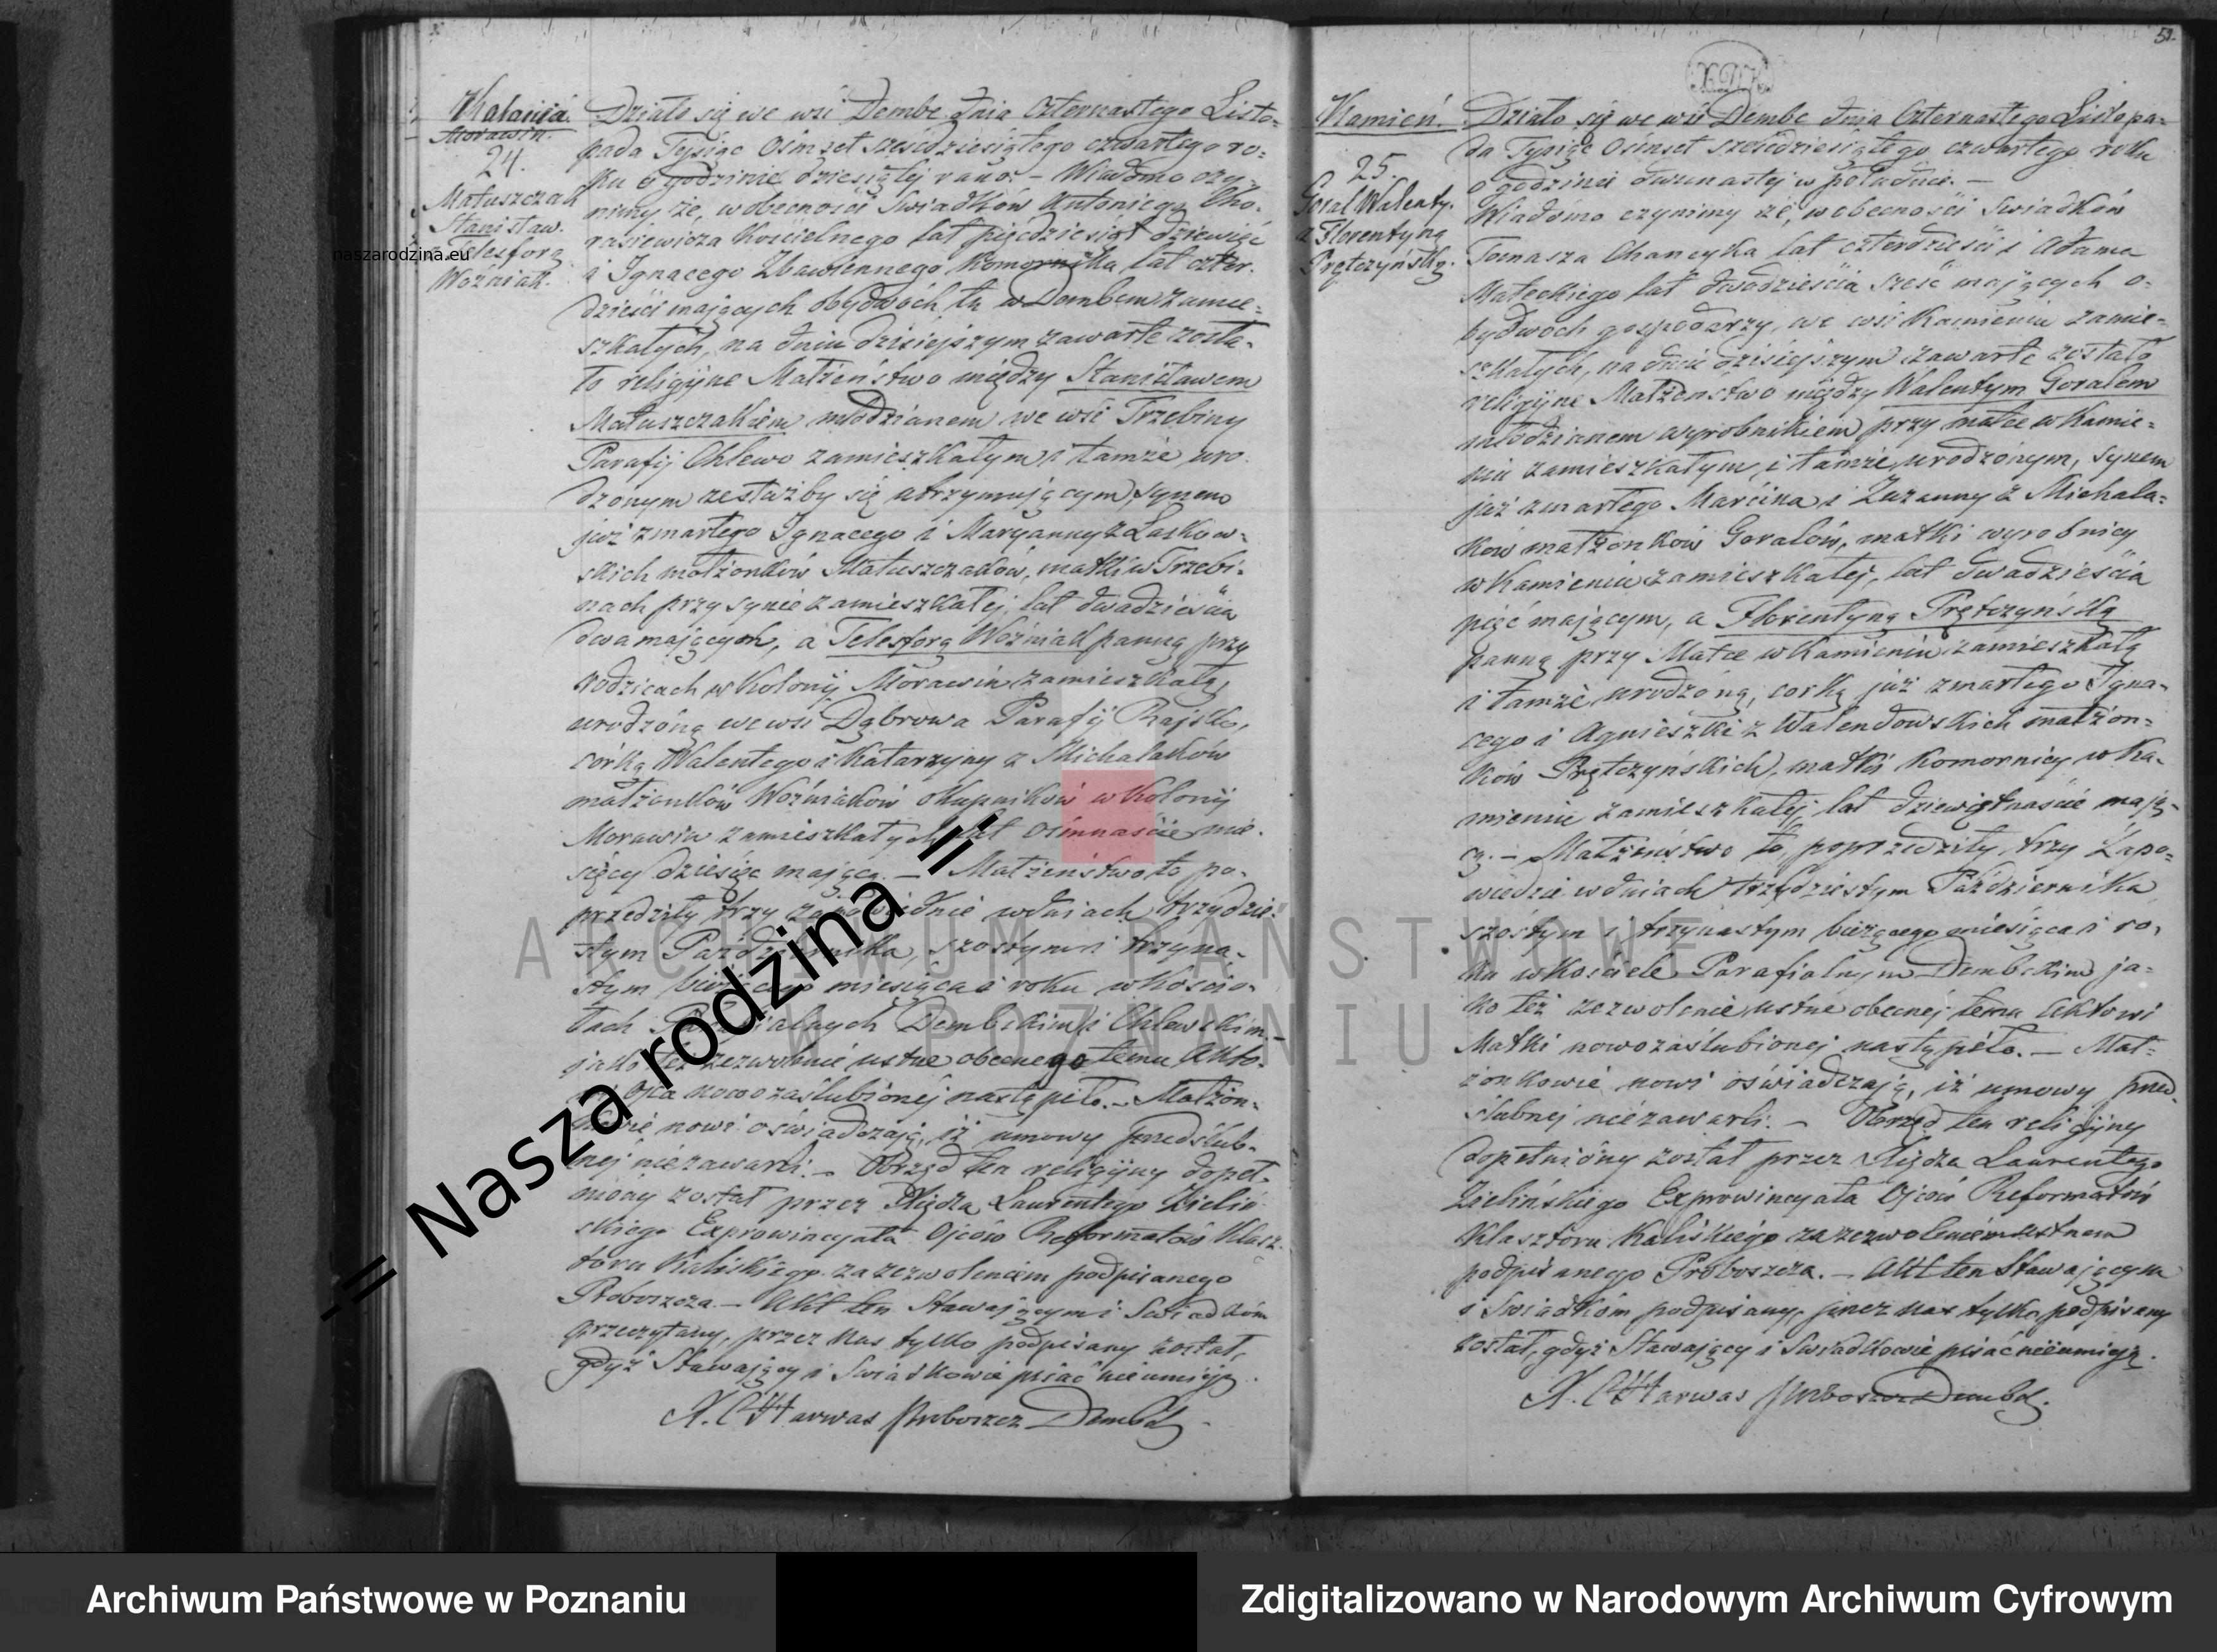 52.
Kolonia
Morawin.
24.
Matuszczak
Stanisław.
Telesfora
Woźniak.
naszarodzina.eu
Działo się we wsi Dembe dnia Czternastego Listo-
pada Tysiąc Ośmset sześćdziesiątego czwartego ro-
ku o godzinie dziesiątej rano. – Wiadomo czy-
nimy że, w obecności Swiadków Antoniego
Kościelnego lat pięćdziesiąt dziewięć
i Ignacego Zbawiennego Komornika lat czter-
dzieści mających obydwóch tu w Dembem zamie-
szkałych, na dniu dzisiejszym zawarte zosta-
ło religijne Małżeństwo między Stanisławem
Matuszczakiem młodzianem we wsi Trzebiny
Parafij Chlewo zamieszkałym i tamże uro-
dzonym ze służby się utrzymującym, synem
już zmarłego Ignacego i Maryanny z Laskow-
skich małżonków Matuszczaków, matki w Trzebi-
nach przy synie zamieszkałej, lat dwadzieścia
dwa mającym, a Telesforą Woźniak panną przy
rodzicach w Kolonij Morawin zamieszkałą,
urodzoną we wsi Dąbrowa Parafij Rajsko,
córką Walentego i Katarzyny z Michalaków
małżonków Woźniaków okupników w Kolonij
Morawin zamieszkałych lat ośmnaście mie-
sięcy dziesięć mającą. – Małżeństwo to po-
przedziły trzy zapowiednie w dniach trzydzie-
stym Października, szostym i trzyna-
stym bieżącego miesiąca i roku w Kościo-
łach Parafialnych Dembskim i Chlewskim
jako też zezwolenie ustne obecnego temu Akto-
wi Ojca nowozaślubionej nastąpiło. – Małżon-
kowie nowi oświadczają, iż umowy przedślub-
nej niezawarli. – Obrząd ten religijny dopeł-
niony został przez Xiędza Laurentego Zieliń-
skiego Exprowincyała Ojców Reformatów Klasz-
toru Kaliskiego za zezwoleniem podpisanego
Proboszcza. – Akt ten Stawającym i Swiadkom
przeczytany, przez nas tylko podpisany został,
gdyż Stawający i Swiadkowie pisać nieumieją.
X. Harwas Proboszcz Dembsk.
Kamień.
25.
Goral Walenty.
a Florentyną
Prętczyńską.
Działo się we wsi Dembe dnia Czternastego Listopa-
da Tysiąc Ośmset sześćdziesiątego czwartego roku
o godzinie dwunastej w południe. –
Wiadomo czynimy że, w obecności Swiadków
Tomasza lat czterdzieści i Adama
Małeckiego lat dwadzieścia sześć mających o-
bydwóch gospodarzy, we wsi Kamieniu zamie-
szkałych, na dniu dzisiejszym zawarte zostało
religijne Małżeństwo między Walentym Goralem
młodzianem wyrobnikiem przy matce w Kamie-
niu zamieszkałym, i tamże urodzonym, synem
już zmarłego Marcina i Zuzanny z Michala-
ków małżonków Goralów, matki wyrobnicy
w Kamieniu zamieszkałej, lat dwadzieścia
pięć mającym, a Florentyną Prętczyńską
panną przy Matce w Kamieniu zamieszkałą
i tamże urodzoną, corką już zmarłego Igna-
cego i Agnieszki z Walendowskich małżon-
ków Prętczyńskich, matki Komornicy w Ka-
mieniu zamieszkałej, lat dziewiętnaście mają-
cą. – Małżeństwo to poprzedziły trzy Zapo-
wiedzie w dniach trzydziestym Października
szóstym i trzynastym bieżącego miesiąca i ro-
ku w Kościele Parafialnym Dembskim ja-
ko też zezwolenie ustne obecnej temu Aktowi
Matki nowozaślubionej nastąpiło. – Mał-
żonkowie nowi oświadczają, iż umowy przed-
ślubnej niezawarli. – Obrząd ten religijny
dopełniony został przez Xiędza Laurentego
Zielińskiego Exprowincyała Ojców Reformatów
Klasztoru Kaliskiego za zezwoleniem ustnem
podpisanego Proboszcza. – Akt ten Stawającym
i Swiadkom podpisany, przez nas tylko podpisany
został, gdyż Stawający i Swiadkowie pisać nieumieją.
X. Harwas Proboszcz Dembsk.
ARCHIWUM PAŃSTWOWE
W POZNANIU
-= Nasza rodzina =-
Archiwum Państwowe w Poznaniu
Zdigitalizowano w Narodowym Archiwum Cyfrowym